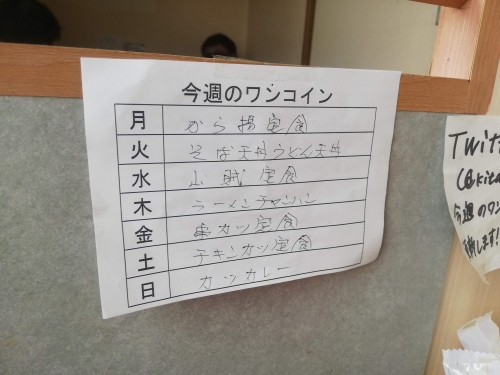 今週のワンコイン
月 から揚定食
火 そば天丼うどん天丼
水 山賊定食
木 ラーメンチャーハン
金 串カツ定食
土 チキンカツ定食
日 カツカレー
Twitt
(@kita
今週のワン
します!